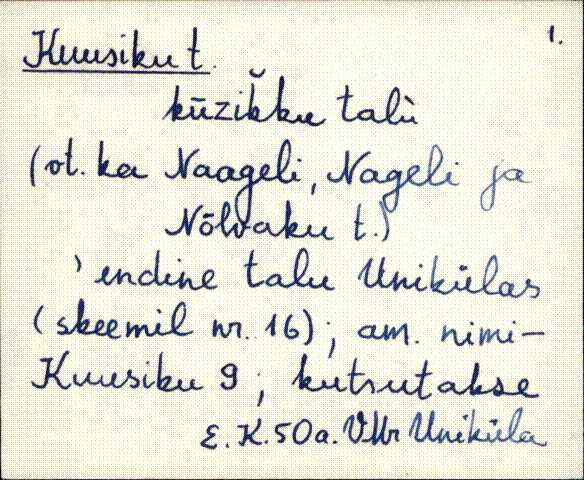 Kuusiku t. 1.
kūzik̆ku talù
(vt. ka Naageli, Nageli ja
Nõlvaku t.)
' endine talu Unikülas
(skeemil nr. 16); am. nimi-
Kuusiku 9; kutsutakse
E.K. 50a. VMr Uniküla